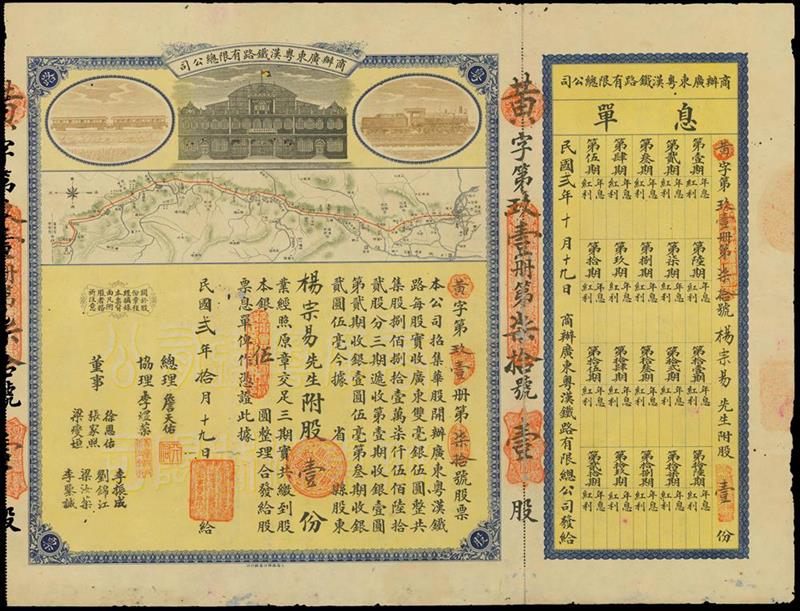 商辦廣東粵漢鐵路有限總公司
黃字第玖壹冊第柒拾號股票
本公司招集華股開辦廣東粵漢鐵
路每股實收廣東雙毫銀伍圓整共
集股捌佰捌拾壹萬柒仟伍佰陸拾
貳股分三期遞收第壹期收銀壹圓
第貳期收銀壹圓伍毫第叁期收銀
貳圓伍毫今據 省 縣股東
楊宗易先生附股壹份
業經照原章交足三期實共繳到股
本銀伍圓整理合發給股
票息單俾作憑證此據
民國貳年拾月十九日給
總理詹天佑
協理
董事
徐恩佑
張家照
李振成
劉錦江
李鑒誠
黃字第玖壹冊第柒拾號壹股
商辦廣東粵漢鐵路有限總公司
息單
黃字第玖壹冊第柒拾號楊宗易先生附股壹份
第壹期年息紅利
第貳期年息紅利
第叁期年息紅利
第肆期年息紅利
第伍期年息紅利
第陸期年息紅利
第柒期年息紅利
第捌期年息紅利
第玖期年息紅利
第拾期年息紅利
第拾壹期年息紅利
第拾貳期年息紅利
第拾叁期年息紅利
第拾肆期年息紅利
第拾伍期年息紅利
第拾陸期年息紅利
第拾柒期年息紅利
第拾捌期年息紅利
第拾玖期年息紅利
第貳拾期年息紅利
民國貳年十月十九日商辦廣東粵漢鐵路有限總公司發給